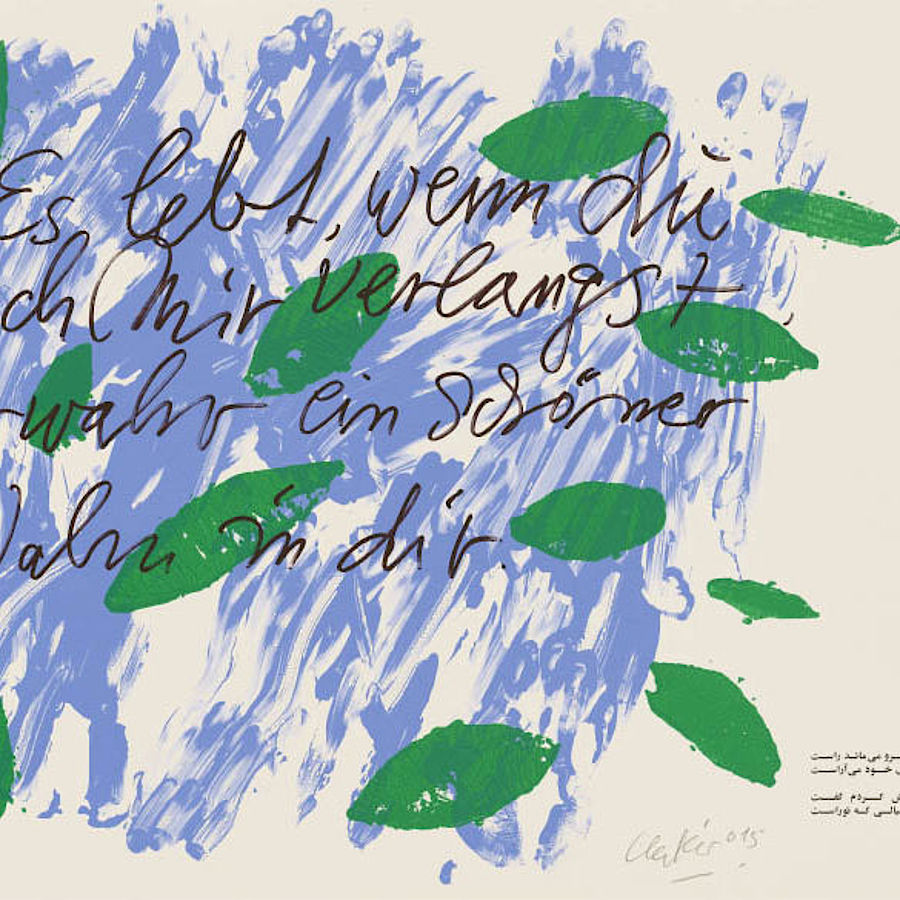 Es lebt, wenn du
ch mir verlangst,
rwahr ein schöner
Wahn in dir.
رو می‌ماند راست
خود می‌آراست
کردم گفت
که توراست
015